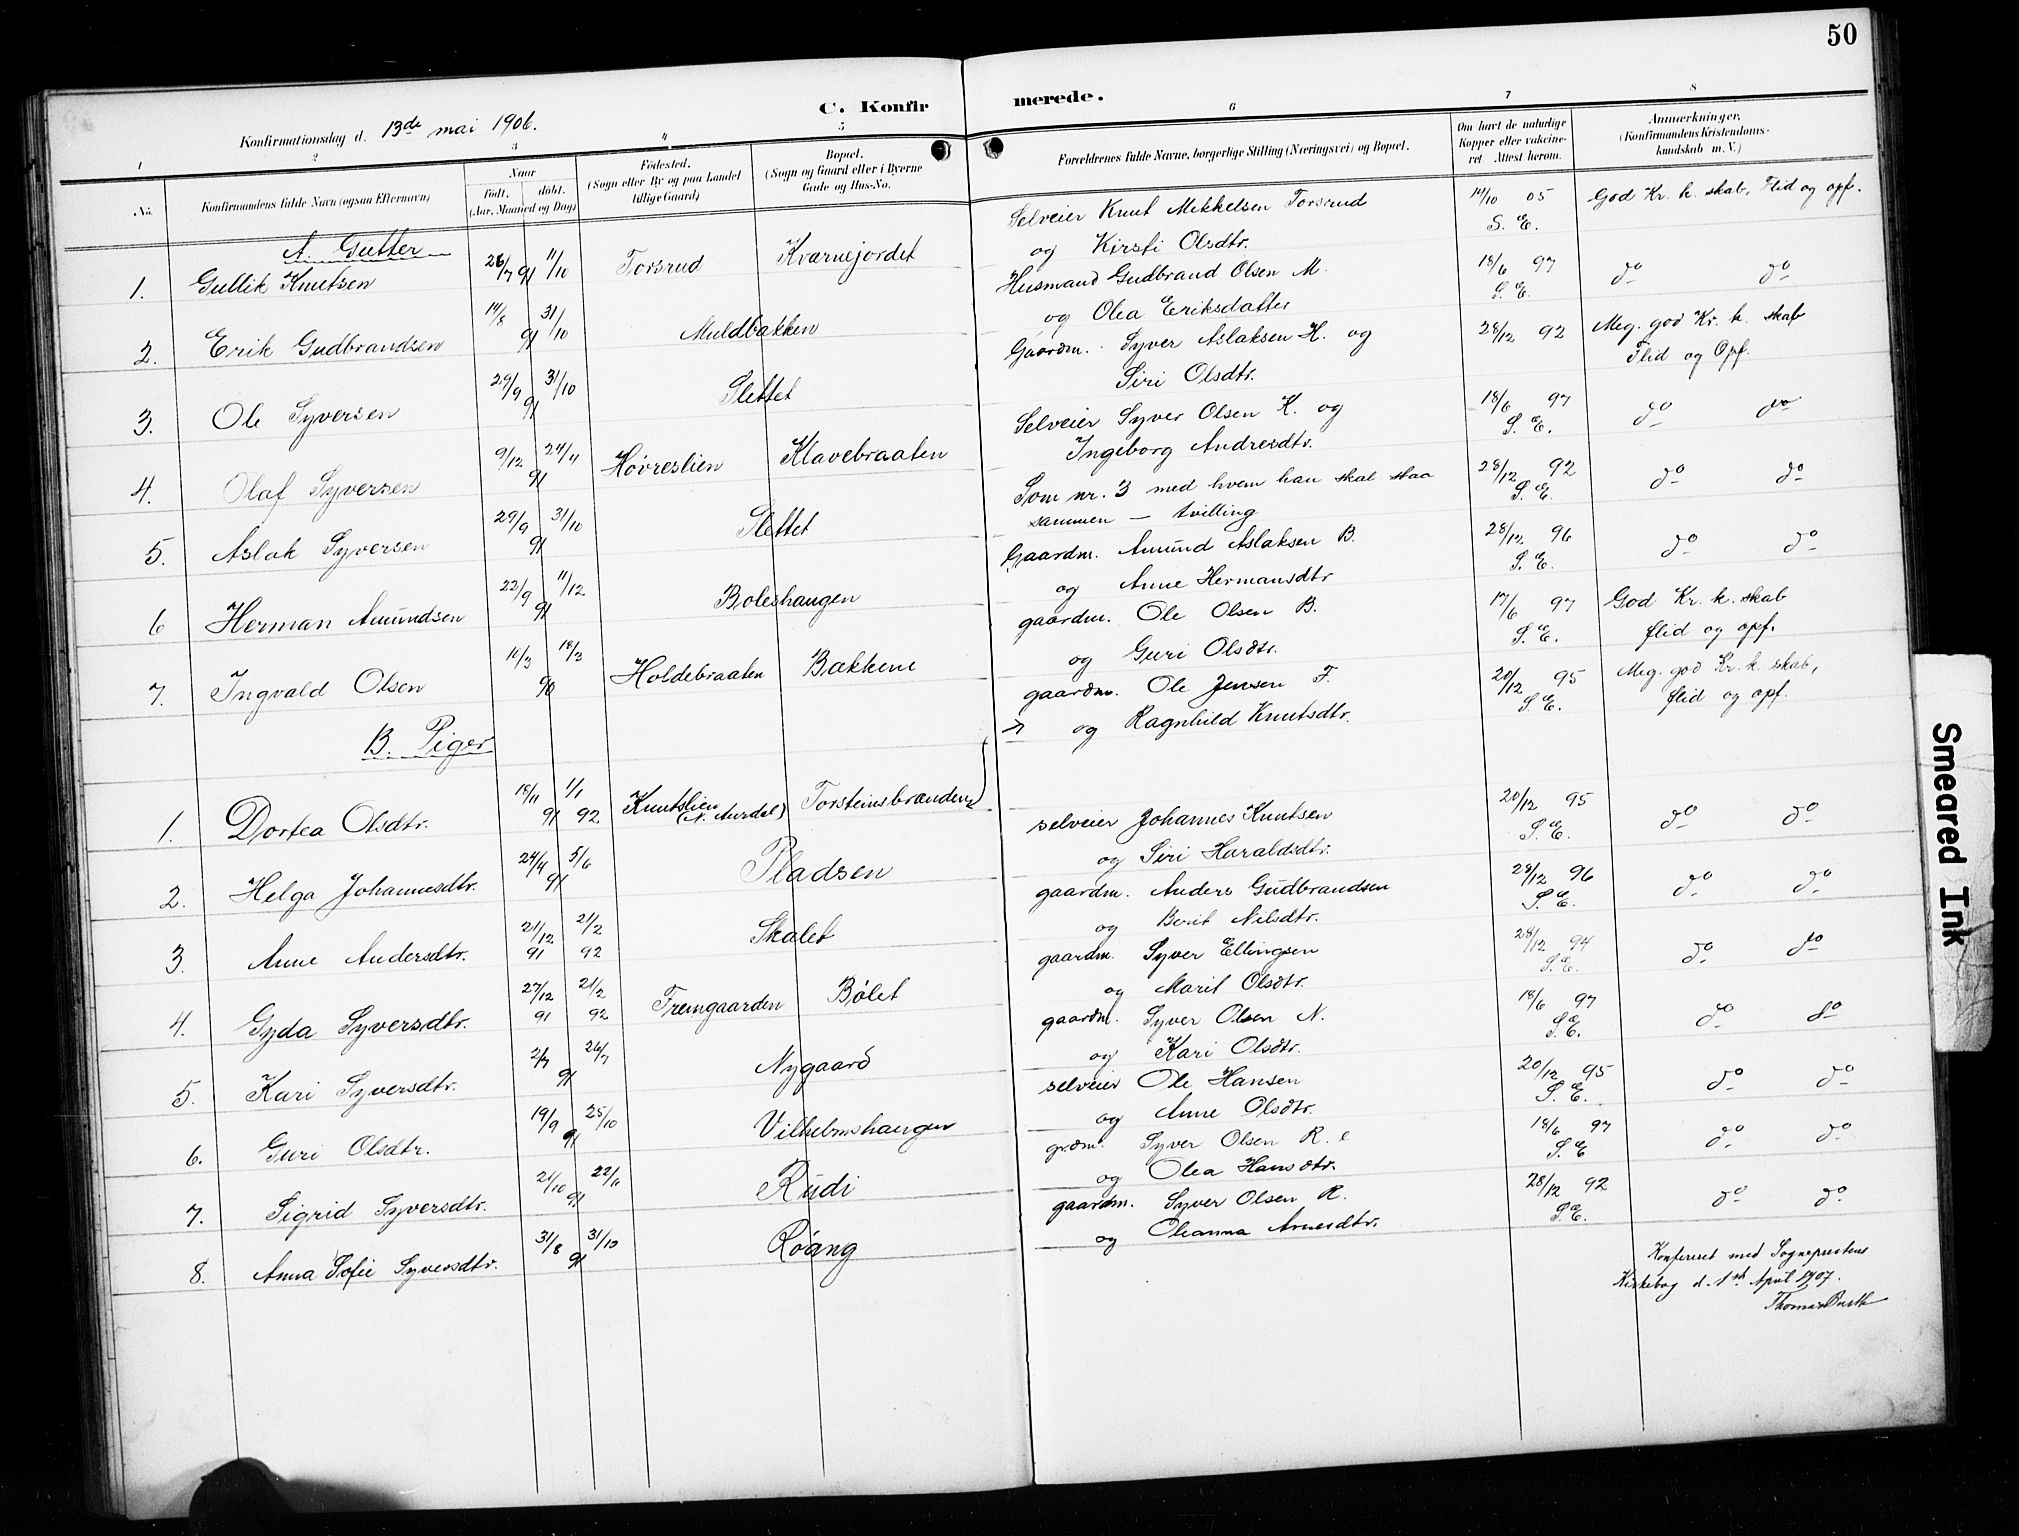 50
C. Konfirmerede.
Konfirmationsdag d. 13de mai 1906.
1 2 3 4 5 6 7 8
No. Konfirmandens fulde Navn (ogsaa Efternavn)
Naar
født. døbt.
(Aar, Maaned og Dag)
Fødested.
(Sogn eller By og paa Landet
tillige Gaard)
Bopæl.
(Sogn og Gaard eller i Byerne
Gade og Hus-No.
Forældrenes fulde Navne, borgerlige Stilling (Næringsvei) og Bopæl.
Om havt de naturlige
Kopper eller vakcine-
ret. Attest herom.
Anmerkninger,
(Konfirmandens Kristendoms-
kundskab m. V.)
A. Gutter
1. Gullik Knutsen 26/7 91 11/10 Torsrud Kværnejordet Selveier Knut Mikkelsen Torsrud 14/10 05 God Kr. k. skab, Flid og opf.
og Kirsti Olsdtr. S. E.
2. Erik Gudbrandsen 14/8 91 31/10 Muldbakken Husmand Gudbrand Olsen M. 18/6 97 do do
og Olea Eriksdatter S. E.
3. Ole Syversen 29/9 91 31/10 Slettet Gaardm. Syver Aslaksen H. og 28/12 92 Meg. god Kr. k. skab
Siri Olsdtr. Flid og Opf.
4. Olaf Syversen 9/12 91 24/11 Høvreslien Klavebraaten Selveier Syver Olsen K. og 18/6 97 do do
Ingeborg Andresdtr. S. E.
5. Aslak Syversen 29/9 91 31/10 Slettet Som nr. 3 med hvem han skal staa 28/12 92 do do
sammen – tvilling S. E.
6 Herman Amundsen 22/9 91 11/12 Boleshaugen Gaardm. Amund Aslaksen B. 28/12 96 do do
og Anne Hermansdtr S. E.
7. Ingvald Olsen 16/3 90 18/3 Holdebraaten Bakkene gaardm. Ole Olsen B. 17/6 97 God Kr. k. skab
og Guri Olsdtr. S. E. flid og opf.
B. Piger
1. Dortea Olsdtr. 18/11 91 1/1 92 Knutslien (N. Aurdal) Torsteinsbraaden gaardm. Ole Jensen F. 20/12 95 Meg. god Kr. k. skab,
og Ragnhild Knutsdtr. S. E. flid og opf.
2. Helga Johannesdtr. 24/4 91 5/6 Pladsen selveier Johannes Knutsen 20/12 95 do do
og Siri Haraldsdtr. S. E.
3. Anne Andersdtr. 21/12 91 21/2 92 Skalet gaardm. Anders Gudbrandsen 28/12 96 do do
og Berit Nilsdtr. S. E.
4. Gyda Syversdtr. 27/12 91 21/2 92 Fremgaarden Bølet gaardm. Syver Ellingsen 28/12 94 do do
og Marit Olsdtr. S. E.
5. Kari Syversdtr. 2/7 91 26/7 Nygaard gaardm. Syver Olsen N. 18/6 97 do do
og Kari Olsdtr. S. E.
6. Guri Olsdtr. 19/9 91 25/10 Vilhelmshaugen selveier Ole Hansen 20/12 95 do do
og Anne Olsdtr. S. E.
7. Sigrid Syversdtr. 21/10 91 22/11 Rudi grdm. Syver Olsen R. 18/6 97 do do
og Olea Hansdtr. S. E
8. Anna Sofie Syversdtr. 31/8 91 31/10 Røang gaardm. Syver Olsen R. 28/12 92 do do
og Oleanna Arnesdtr. S. E.
Konfereret med Sogneprestens
Kirkebog d. 1ste April 1907.
Thomas Barth
Smeared Ink